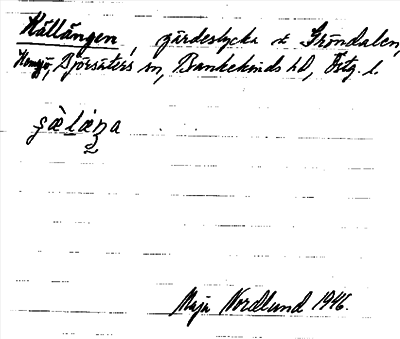 Källängen, gärdeslycka t Gröndalen,
Björsäters sn, Bankekinds hd, Östg. l.
Maja Nordlund 1946.